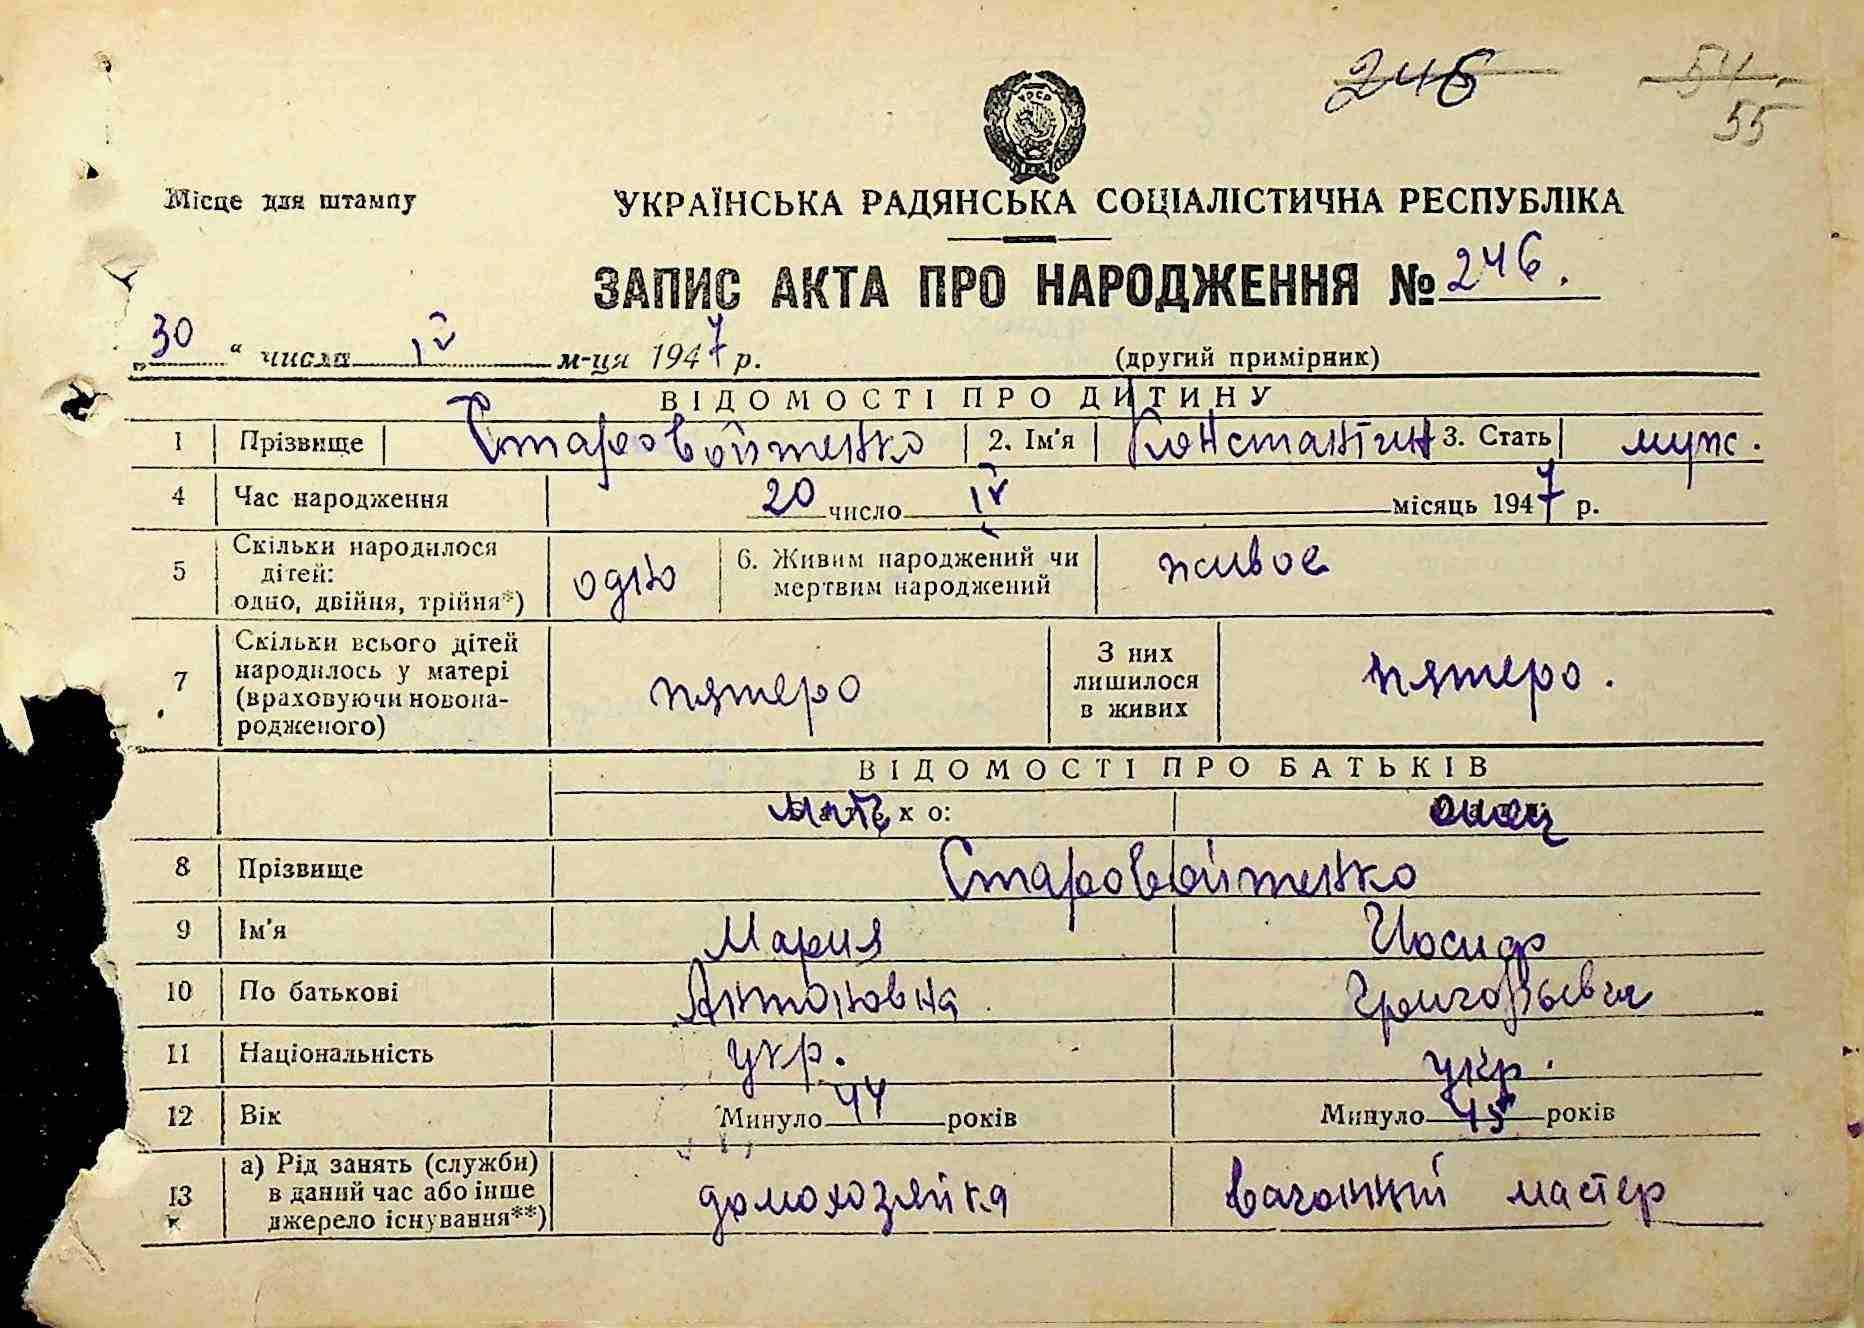 246 54
55
УРСР
Місце для штампу УКРАЇНСЬКА РАДЯНСЬКА СОЦІАЛІСТИЧНА РЕСПУБЛІКА
ЗАПИС АКТА ПРО НАРОДЖЕННЯ № 246.
„30 “ числа IV м-ця 1947 р. (другий примірник)
ВІДОМОСТІ ПРО ДИТИНУ
1 Прізвище Старовойтенко 2. Ім'я Константин 3. Стать муж.
4 Час народження 20 число IV місяць 1947 р.
5 Скільки народилося дітей: одно, двійня, трійня*) одно 6. Живим народжений чи мертвим народжений живое
7 Скільки всього дітей народилось у матері (враховуючи новонародженого) пятеро З них лишилося в живих пятеро.
ВІДОМОСТІ ПРО БАТЬКІВ
мать х о: отец
8 Прізвище Старовойтенко
9 Ім'я Мария Иосиф
10 По батькові Антоновна Григорьевич
11 Національність укр. укр.
12 Вік Минуло 44 років Минуло 45 років
13 а) Рід занять (служби) в даний час або інше джерело існування**) домохозяйка вагонный мастер